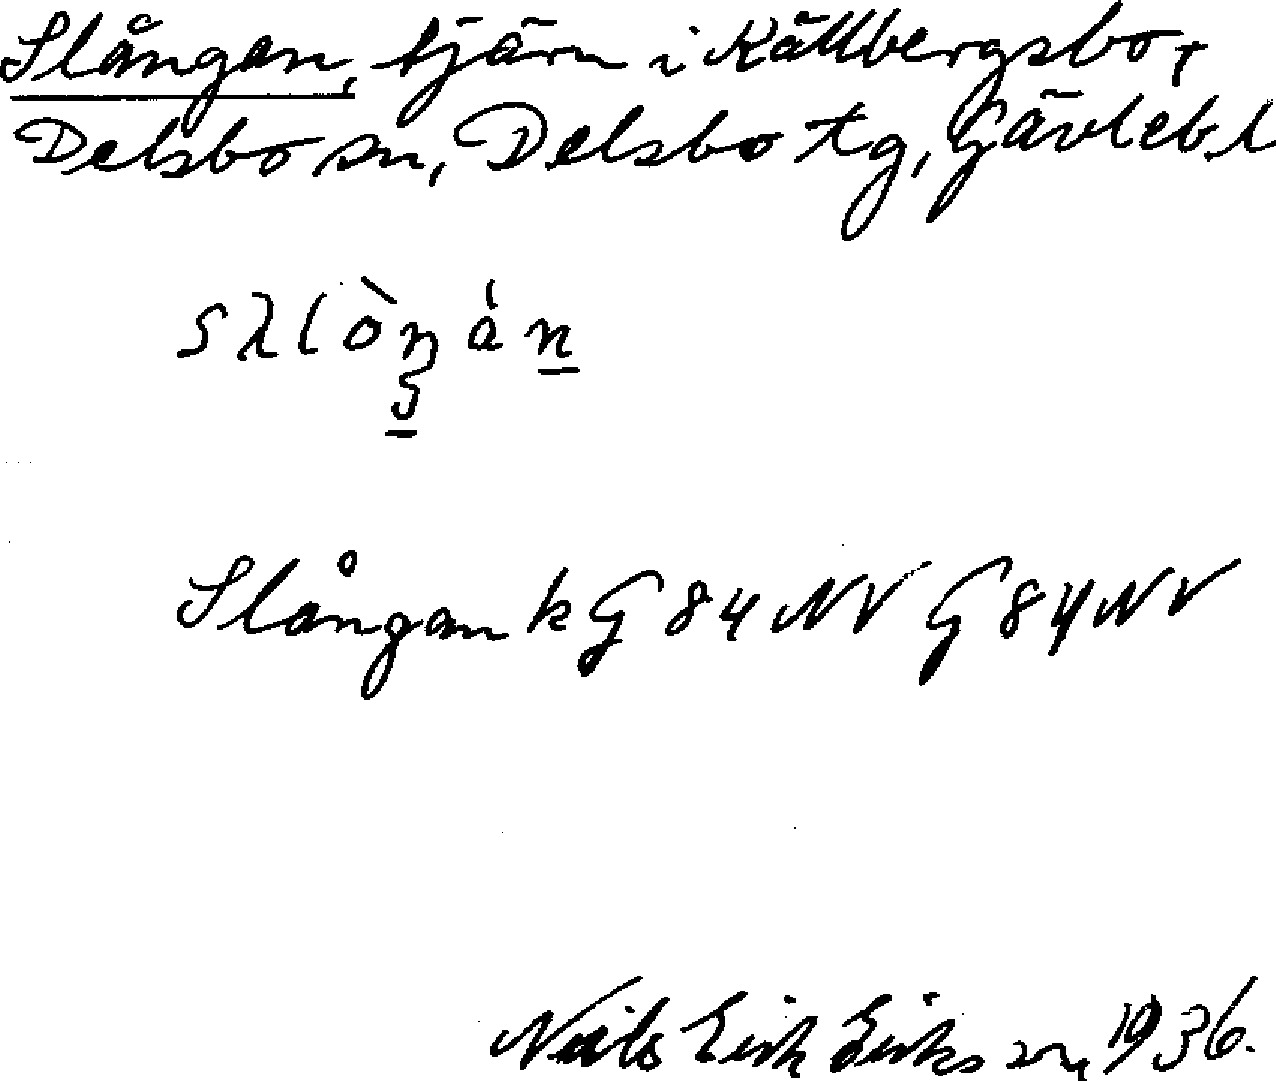 Slången, tjärn i Källbergsbo,
Delsbo sn, Delsbo tg, Gävlebl
Slången k G 84 NV G 84 NV
Nils Erik Eriksson, 1936.